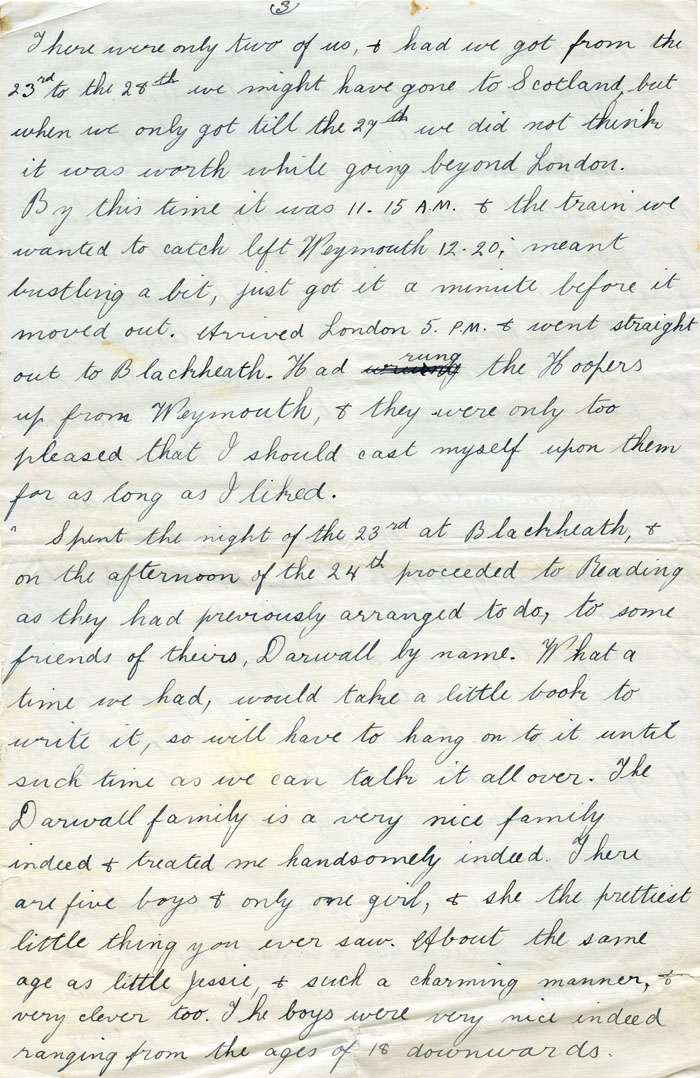 3
There were only two of us, & had we got from the
23rd to the 28th we might have gone to Scotland, but
when we only got till the 27th we did not think
it was worth while going beyond London.
By this time it was 11-15 A.M. & the train we
wanted to catch left Weymouth 12-20; meant
bustling a bit, just got it a minute before it
moved out. Arrived London 5. P.M. & went straight
out to Blackheath. Had rung the Hoopers
up from Weymouth, & they were only too
pleased that I should cast myself upon them
for as long as I liked.
" Spent the night of the 23rd at Blackheath, &
on the afternoon of the 24th proceeded to Reading
as they had previously arranged to do, to some
friends of theirs, Darwall by name. What a
time we had, would take a little book to
write it, so will have to hang on to it until
such time as we can talk it all over. The
Darwall family is a very nice family
indeed & treated me handsomely indeed. There
are five boys & only one girl, & she the prettiest
little thing you ever saw. About the same
age as little Jessie, & such a charming manner, &
very clever too. The boys were very nice indeed
ranging from the ages of 18 downwards.